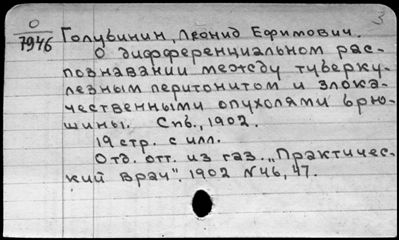 3
О
7946
Голубинин, Леонид Ефимович.
О дифференциальном рас-
познавании между туберку-
лезным перитонитом и злока-
чественными опухолями брю-
шины. Спб., 1902.
19 стр. с илл.
Отд. отт. из газ. „Практичес-
кий врач". 1902 №46, 47.